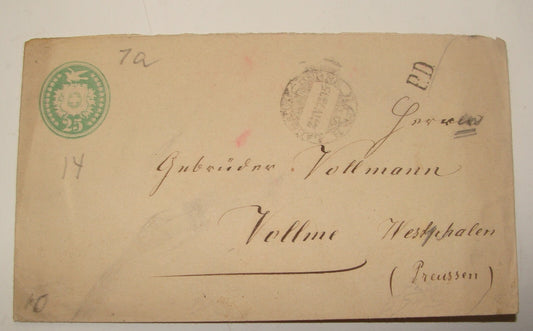 7a
P.D.
25
Herren
14
Gebrüder Vollmann
Vollme Westphalen
(Preussen)